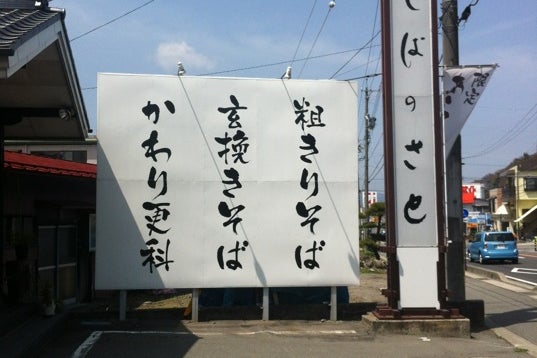 粗きりそば
玄挽きそば
かわり更科
そばのさと